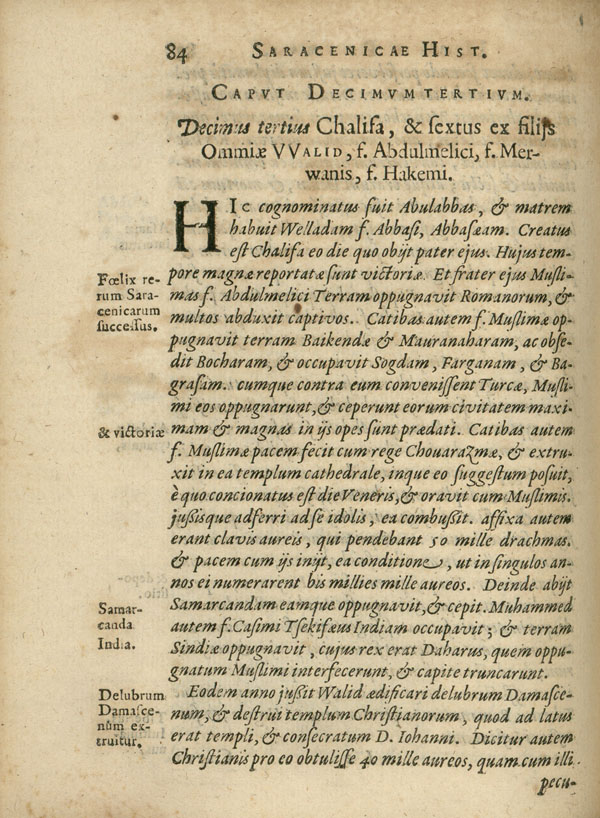 84 SARACENICAE HIST.
CAPVT DECIMVMTERTIVM.
Decimus tertius Chalifa, & ſextus ex filijs
Ommiæ VVALID, f. Abdulmelici, f. Mer-
wanis, f. Hakemi.
HIC cognominatus fuit Abulabbas, & matrem
habuit Welladam f. Abbaſi, Abbaſæam. Creatus
eſt Chalifa eo die quo obijt pater ejus. Hujus tem-
pore magnæ reportatæ ſunt victoriæ. Et frater ejus Muſli-
Fœlix re-
rum Sara-
cenicarum
ſucceſſus.
mas f. Abdulmelici Terram oppugnavit Romanorum, &
multos abduxit captivos. Catibas autem f. Muſlimæ op-
pugnavit terram Baikendæ & Mauranaharam, ac obſe-
dit Bocharam, & occupavit Sogdam, Farganam, & Ba-
graſam. cumque contra eum conveniſſent Turcæ, Muſli-
mi eos oppugnarunt, & ceperunt eorum civitatem maxi-
& victoriæ
mam & magnas in ijs opes ſunt prædati. Catibas autem
f. Muſlimæ pacem fecit cum rege Chouarazmæ, & extru-
xit in ea templum cathedrale, inque eo ſuggeſtum poſuit,
è quo concionatus eſt die Veneris, & oravit cum Muſlimis.
juſſisque adferri ad ſe idolis, ea combuſſit. affixa autem
erant clavis aureis, qui pendebant 50 mille drachmas.
& pacem cum ijs inijt, ea conditione, ut in ſingulos an-
nos ei numerarent bis millies mille aureos. Deinde abijt
Samar-
canda
India.
Samarcandam eamque oppugnavit, & cepit. Muhammed
autem f. Caſimi Tſekifæus Indiam occupavit; & terram
Sindiæ oppugnavit, cujus rex erat Daharus, quem oppu-
gnatum Muſlimi interfecerunt, & capite truncarunt.
Delubrum
Damaſce-
nũm ex-
truitur.
Eodem anno juſſit Walid ædificari delubrum Damaſce-
num, & deſtrui templum Chriſtianorum, quod ad latus
erat templi, & conſecratum D. Iohanni. Dicitur autem
Chriſtianis pro eo obtuliſſe 40 mille aureos, quam cum illi
pecu-